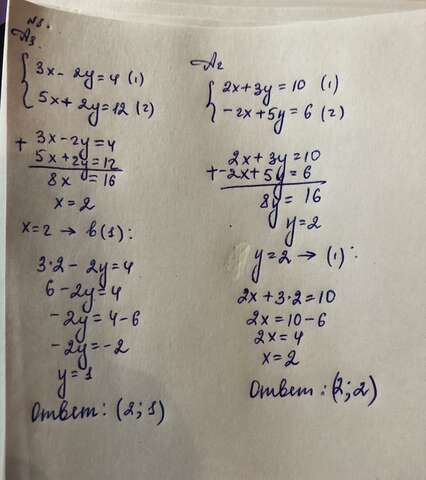 №1.
A3
{ 3x - 2y = 4 (1)
5x + 2y = 12 (2)
+ 3x - 2y = 4
5x + 2y = 12
8x = 16
x = 2
x = 2 → в (1):
3·2 - 2y = 4
6 - 2y = 4
-2y = 4 - 6
-2y = -2
y = 1
Ответ: (2; 1)
A2
{ 2x + 3y = 10 (1)
-2x + 5y = 6 (2)
2x + 3y = 10
+ -2x + 5y = 6
8y = 16
y = 2
y = 2 → (1):
2x + 3·2 = 10
2x = 10 - 6
2x = 4
x = 2
Ответ: (2; 2)